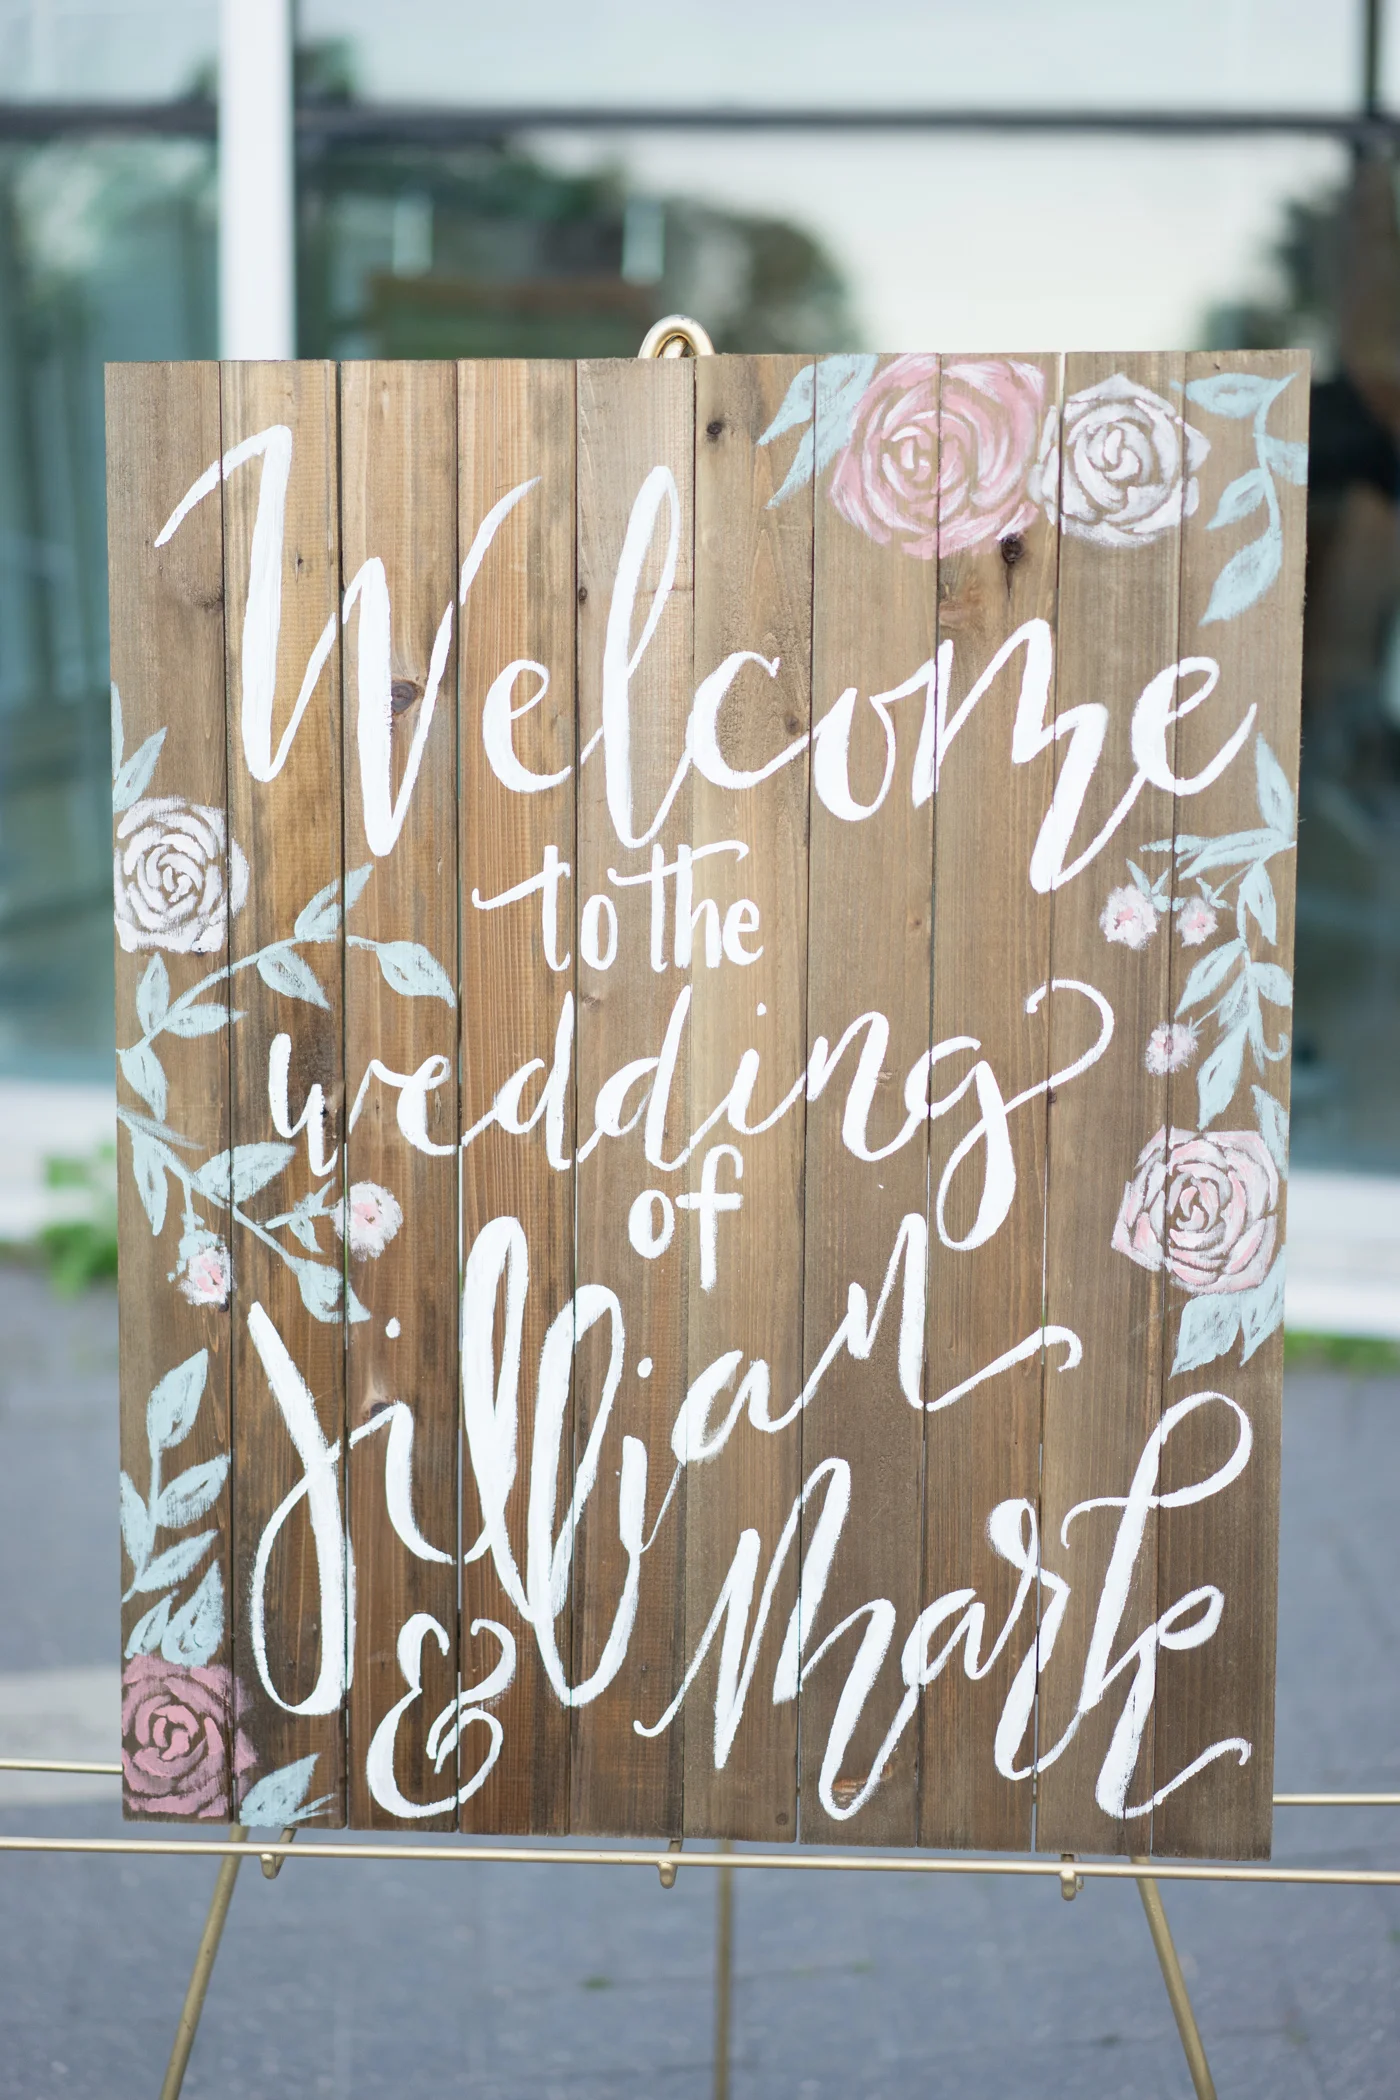 Welcome
to the
wedding
of
Jillian
& Mark